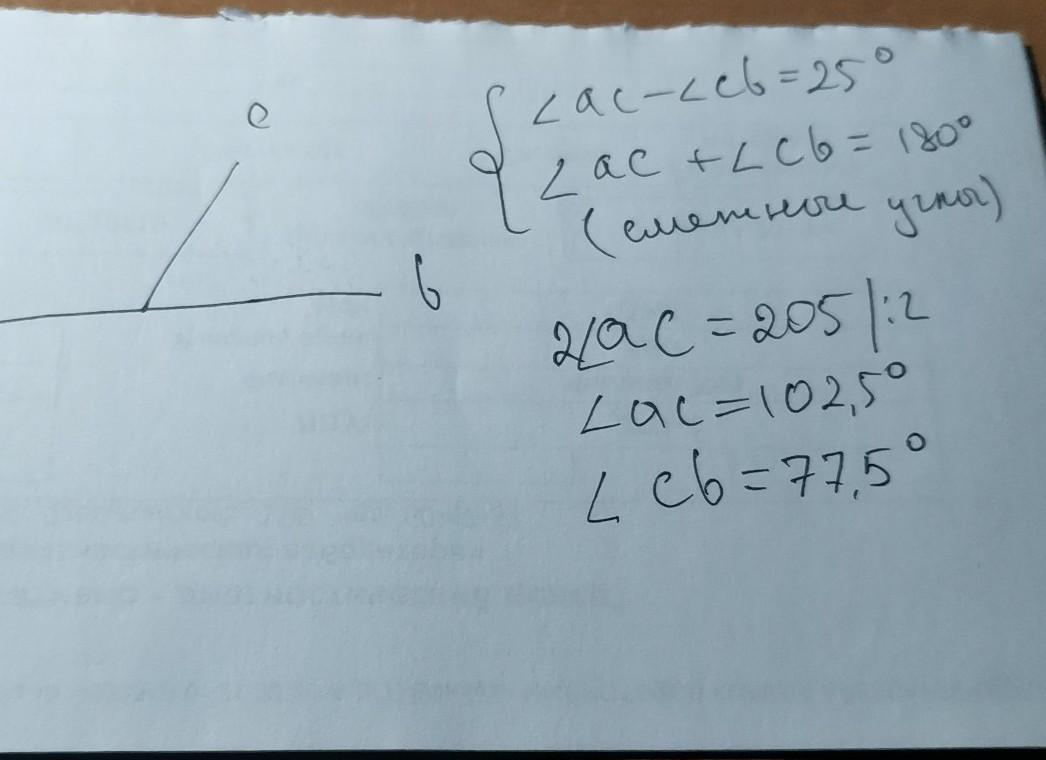 c
b
∠ac-∠cb=25°
∠ac+∠cb=180°
(смежные углы)
2∠ac=205 |:2
∠ac=102,5°
∠cb=77,5°